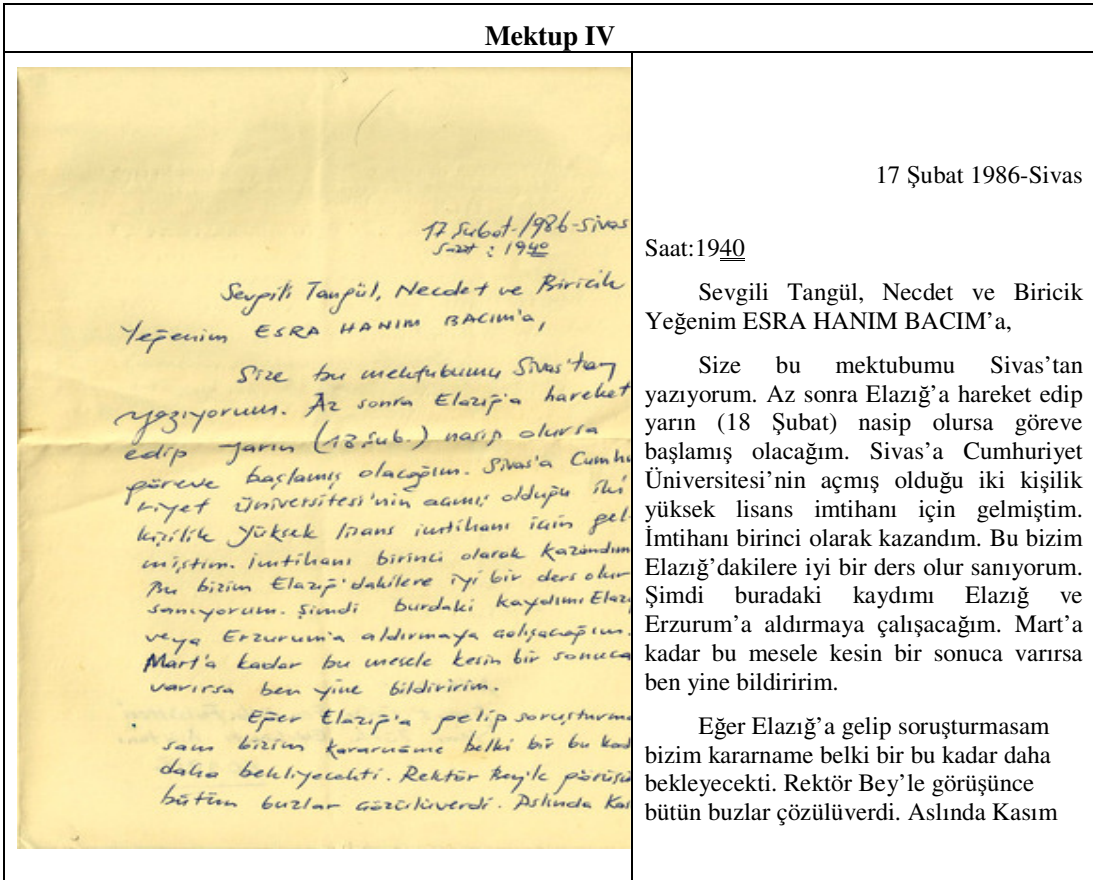 Mektup IV
17 Şubat-1986-Sivas
Saat : 19 40
Sevgili Tangül, Necdet ve Biricik
Yeğenim ESRA HANIM BACIM'a,
Size bu mektubumu Sivas'tan
yazıyorum. Az sonra Elazığ'a hareket
edip yarın (18 Şub.) nasip olursa
göreve başlamış olacağım. Sivas'a Cumhu
riyet Üniversitesi'nin açmış olduğu iki
kişilik Yüksek lisans imtihanı için gel-
miştim. İmtihanı birinci olarak kazandım
Bu bizim Elazığ'dakilere iyi bir ders olur
sanıyorum. Şimdi burdaki kaydımı Elazı
veya Erzurum'a aldırmaya çalışacağım.
Mart'a kadar bu mesele kesin bir sonuca
varırsa ben yine bildiririm.
Eğer Elazığ'a gelip soruşturma
sam bizim kararnâme belki bir bu kad
daha bekliyecekti. Rektör Bey'le görüşü
bütün buzlar çözülüverdi. Aslında Kas
17 Şubat 1986-Sivas
Saat:1940
Sevgili Tangül, Necdet ve Biricik
Yeğenim ESRA HANIM BACIM'a,
Size bu mektubumu Sivas'tan
yazıyorum. Az sonra Elazığ'a hareket edip
yarın (18 Şubat) nasip olursa göreve
başlamış olacağım. Sivas'a Cumhuriyet
Üniversitesi'nin açmış olduğu iki kişilik
yüksek lisans imtihanı için gelmiştim.
İmtihanı birinci olarak kazandım. Bu bizim
Elazığ'dakilere iyi bir ders olur sanıyorum.
Şimdi buradaki kaydımı Elazığ ve
Erzurum'a aldırmaya çalışacağım. Mart'a
kadar bu mesele kesin bir sonuca varırsa
ben yine bildiririm.
Eğer Elazığ'a gelip soruşturmasam
bizim kararname belki bir bu kadar daha
bekleyecekti. Rektör Bey'le görüşünce
bütün buzlar çözülüverdi. Aslında Kasım